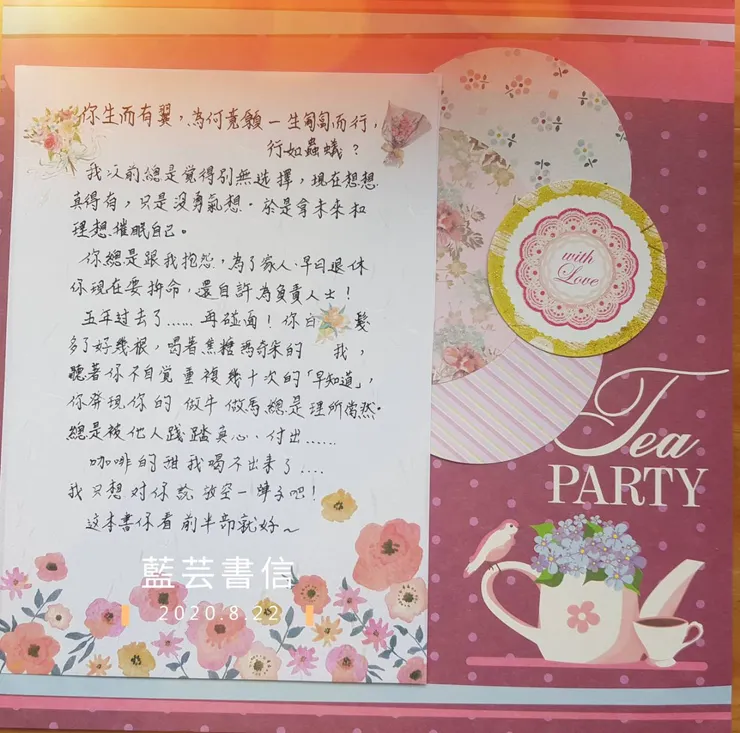 你生而有翼，為何竟願一生匍匐而行，
行如蟲蟻？
我以前總是覺得別無选擇，現在想想
真得有，只是沒勇氣想。於是拿未來和
理想催眠自己。
你總是跟我抱怨，為了家人、早日退休
你現在要拚命，還自許為負責人士！
五年过去了……再碰面！你白髮
多了好幾根，喝着焦糖瑪奇朵的 我，
聽著你不自覺重複幾十次的「早知道」，
你發現你的 做牛做馬總是理所當然。
總是被他人踐踏真心、付出……
咖啡的甜我喝不出來了....
我只想对你說 放空一陣子吧！
这本書你看前半部就好～
藍芸書信
2020.8.22
with
Love
Tea
PARTY